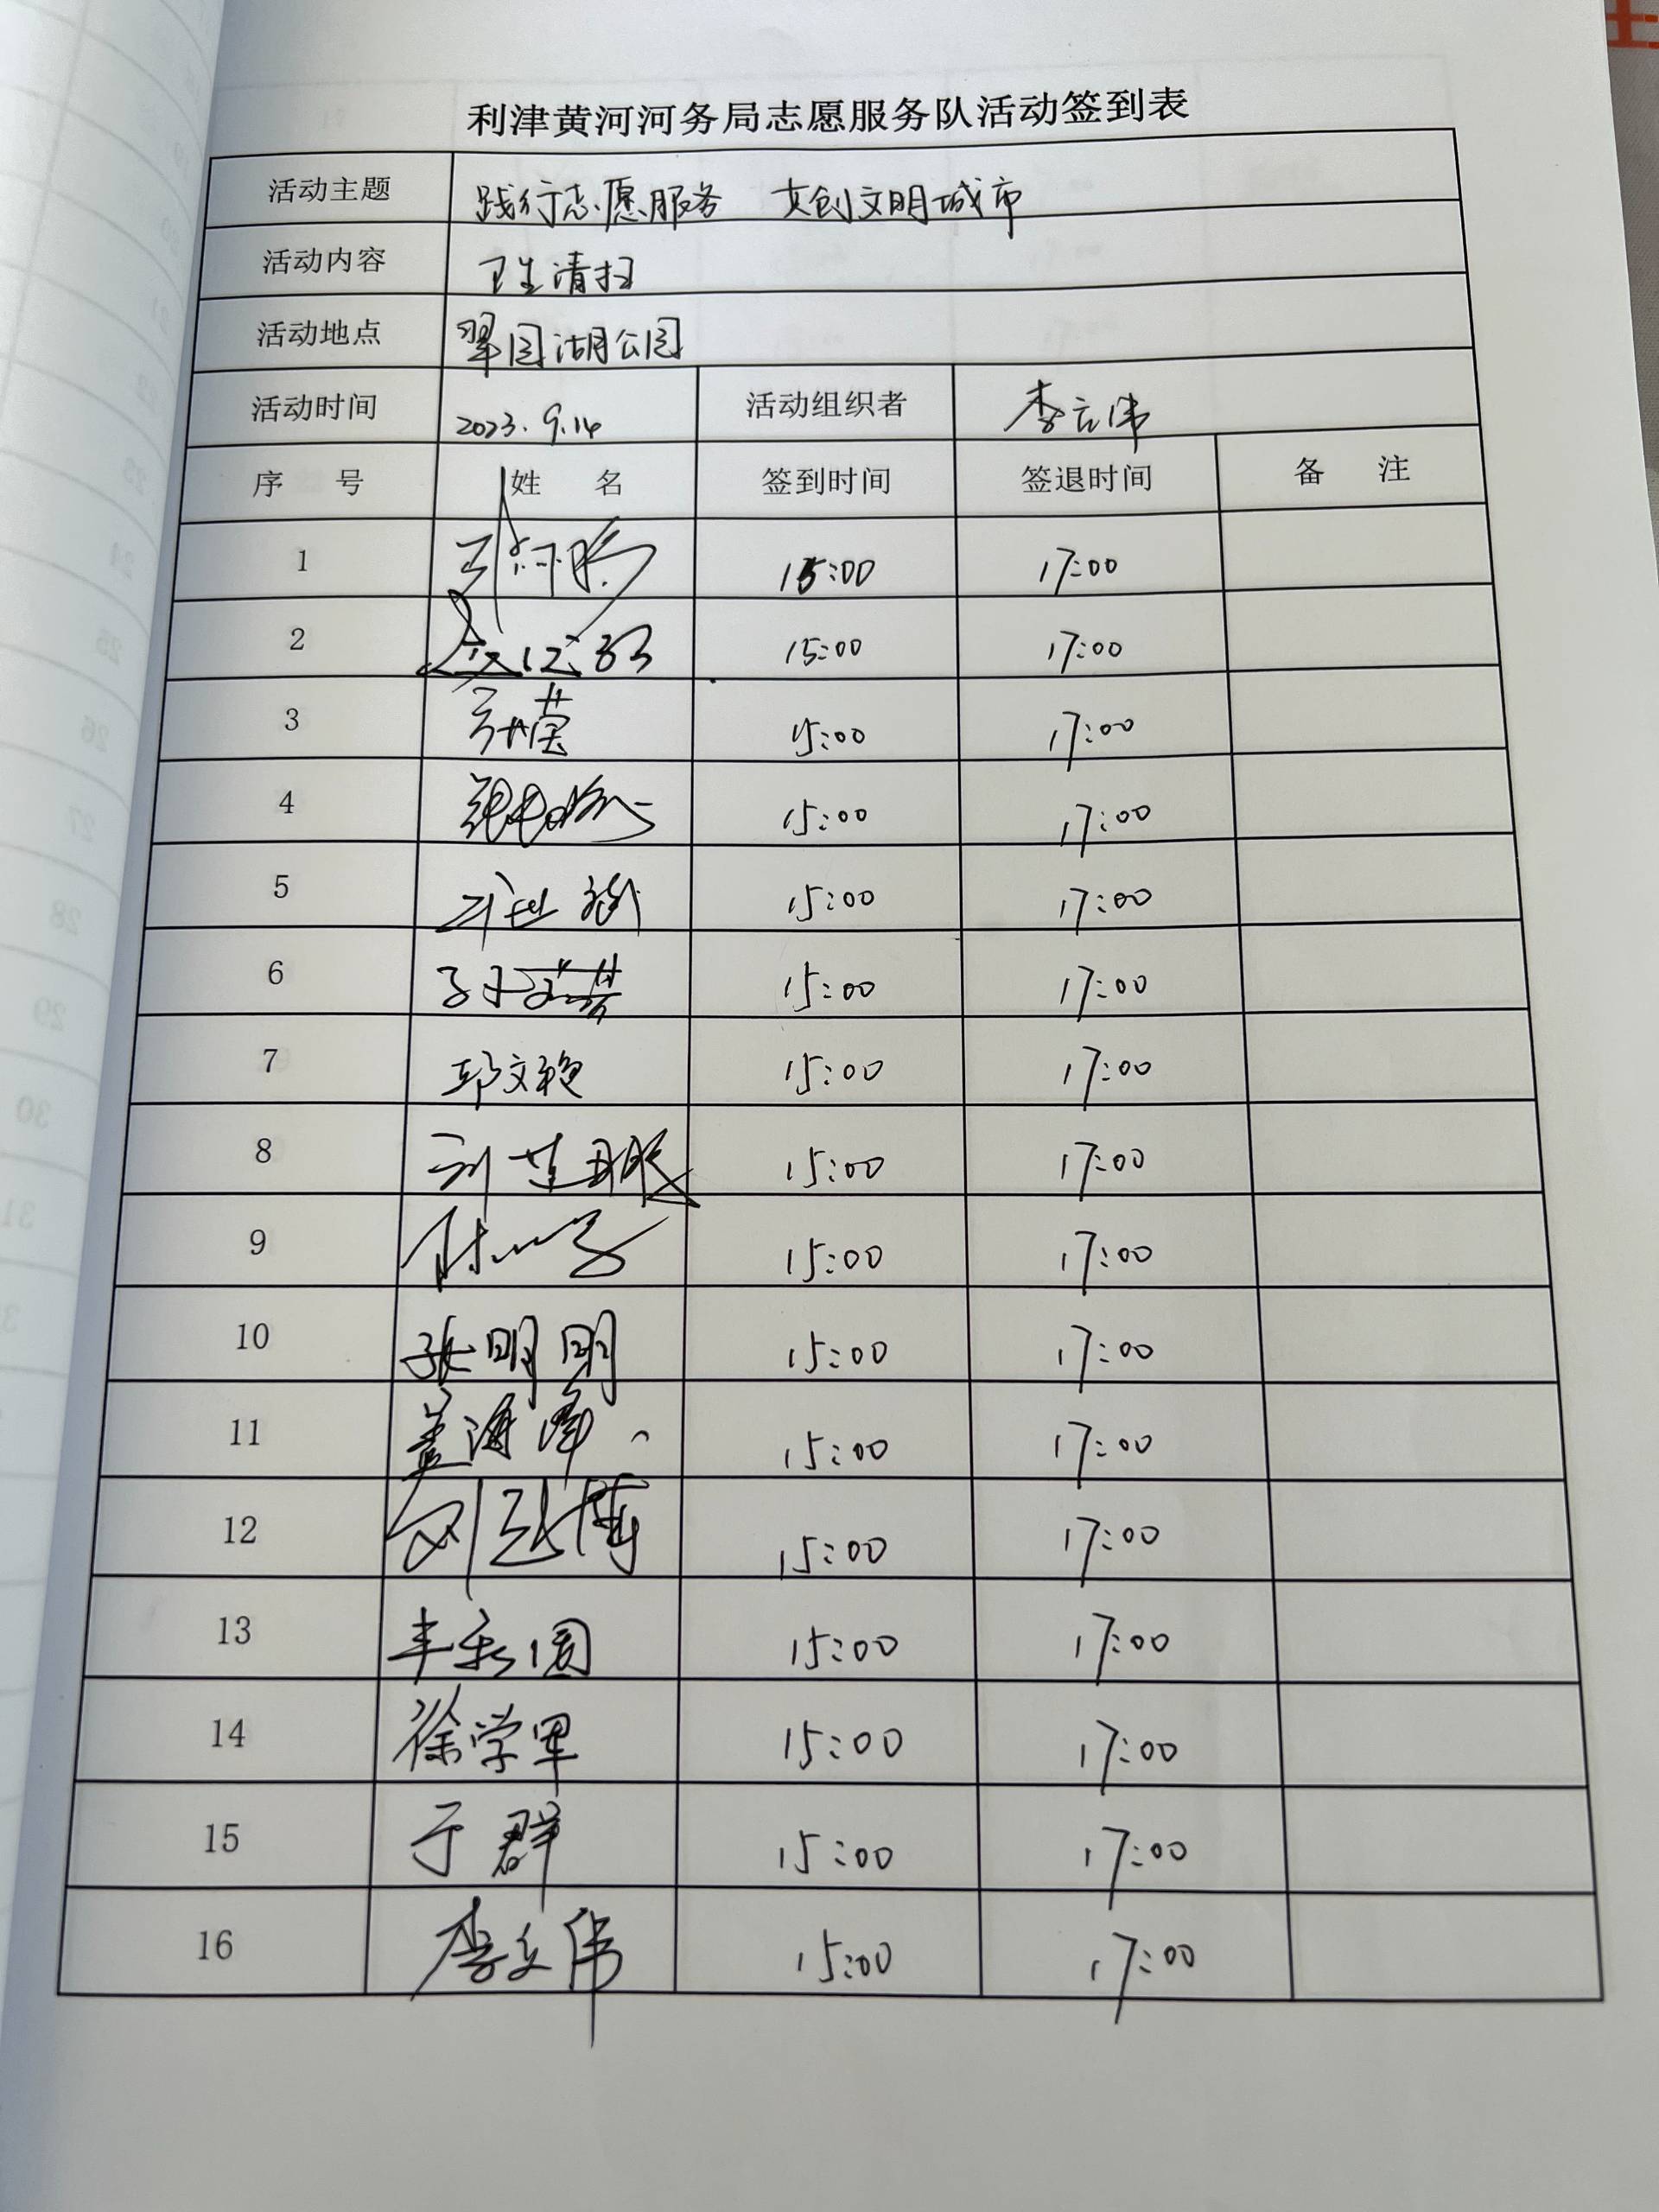 利津黄河河务局志愿服务队活动签到表
活动主题 践行志愿服务 共创文明城市
活动内容 卫生清扫
活动地点 翠园湖公园
活动时间 2023.9.14 活动组织者 李立伟
序 号 姓 名 签到时间 签退时间 备 注
1 15:00 17:00
2 15:00 17:00
3 15:00 17:00
4 15:00 17:00
5 15:00 17:00
6 15:00 17:00
7 邱文艳 15:00 17:00
8 15:00 17:00
9 15:00 17:00
10 张明明 15:00 17:00
11 盖海峰 15:00 17:00
12 15:00 17:00
13 15:00 17:00
14 徐学军 15:00 17:00
15 于群 15:00 17:00
16 李立伟 15:00 17:00